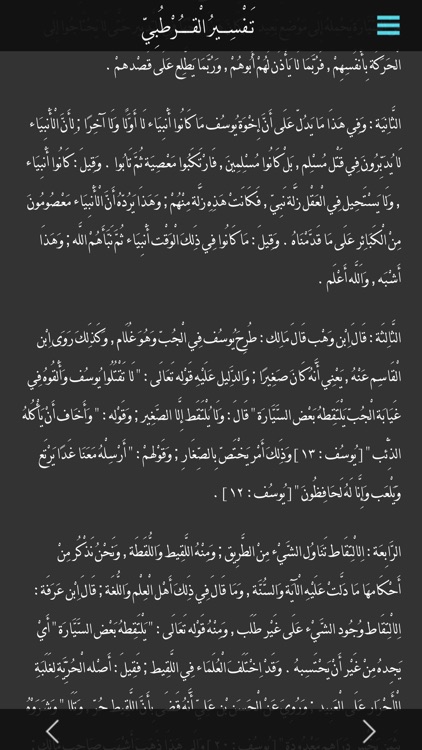 تَفْسِيرُ الْقُرْطُبِيّ
الْحَرَكَة بِأَنْفُسِهِمْ , فَرُبَّمَا لَا يَأْذَن لَهُمْ أَبُوهُمْ , وَرُبَّمَا يَطَّلِع عَلَى قَصْدهمْ .
الثَّانِيَة : وَفِي هَذَا مَا يَدُلّ عَلَى أَنَّ إِخْوَة يُوسُف مَا كَانُوا أَنْبِيَاء لَا أَوَّلًا وَلَا آخِرًا ; لِأَنَّ الْأَنْبِيَاء
لَا يُدَبِّرُونَ فِي قَتْل مُسْلِم , بَلْ كَانُوا مُسْلِمِينَ , فَارْتَكَبُوا مَعْصِيَة ثُمَّ تَابُوا . وَقِيلَ : كَانُوا أَنْبِيَاء
, وَلَا يَسْتَحِيل فِي الْعَقْل زَلَّة نَبِيّ , فَكَانَتْ هَذِهِ زَلَّة مِنْهُمْ ; وَهَذَا يَرُدّهُ أَنَّ الْأَنْبِيَاء مَعْصُومُونَ
مِنْ الْكَبَائِر عَلَى مَا قَدَّمْنَاهُ . وَقِيلَ : مَا كَانُوا فِي ذَلِكَ الْوَقْت أَنْبِيَاء ثُمَّ نَبَّأَهُمْ اللَّه ; وَهَذَا
أَشْبَه , وَاَللَّه أَعْلَم .
الثَّالِثَة : قَالَ اِبْن وَهْب قَالَ مَالِك : طُرِحَ يُوسُف فِي الْجُبّ وَهُوَ غُلَام , وَكَذَلِكَ رَوَى اِبْن
الْقَاسِم عَنْهُ , يَعْنِي أَنَّهُ كَانَ صَغِيرًا ; وَالدَّلِيل عَلَيْهِ قَوْله تَعَالَى : " لَا تَقْتُلُوا يُوسُف وَأَلْقُوهُ فِي
غَيَابَة الْجُبّ يَلْتَقِطهُ بَعْض السَّيَّارَة " قَالَ : وَلَا يُلْتَقَط إِلَّا الصَّغِير ; وَقَوْله : " وَأَخَاف أَنْ يَأْكُلهُ
الذِّئْب " [ يُوسُف : ١٣ ] وَذَلِكَ أَمْر يَخْتَصّ بِالصِّغَارِ ; وَقَوْلهمْ : " أَرْسِلْهُ مَعَنَا غَدًا يَرْتَع
وَيَلْعَب وَإِنَّا لَهُ لَحَافِظُونَ " [ يُوسُف : ١٢ ] .
الرَّابِعَة : الِالْتِقَاط تَنَاوُل الشَّيْء مِنْ الطَّرِيق ; وَمِنْهُ اللَّقِيط وَاللُّقَطَة , وَنَحْنُ نَذْكُر مِنْ
أَحْكَامهَا مَا دَلَّتْ عَلَيْهِ الْآيَة وَالسُّنَّة , وَمَا قَالَ فِي ذَلِكَ أَهْل الْعِلْم وَاللُّغَة ; قَالَ اِبْن عَرَفَة :
الِالْتِقَاط وُجُود الشَّيْء عَلَى غَيْر طَلَب , وَمِنْهُ قَوْله تَعَالَى : " يَلْتَقِطهُ بَعْض السَّيَّارَة " أَيْ
يَجِدهُ مِنْ غَيْر أَنْ يَحْتَسِبهُ . وَقَدْ اِخْتَلَفَ الْعُلَمَاء فِي اللَّقِيط ; فَقِيلَ : أَصْله الْحُرِّيَّة لِغَلَبَةِ
الْأَحْرَار عَلَى الْعَبِيد ; وَرُوِيَ عَنْ الْحَسَن بْن عَلِيّ أَنَّهُ قَضَى بِأَنَّ اللَّقِيط حُرّ , وَتَلَا " وَشَرَوْهُ